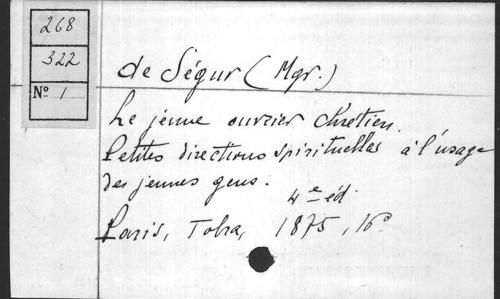 268
322
Nº 1
de Ségur (Mgr.)
Le jeune ouvrier chrétien.
Petites directions spirituelles à l'usage
des jeunes gens.
4e éd.
Paris, Tolra, 1875, 16º